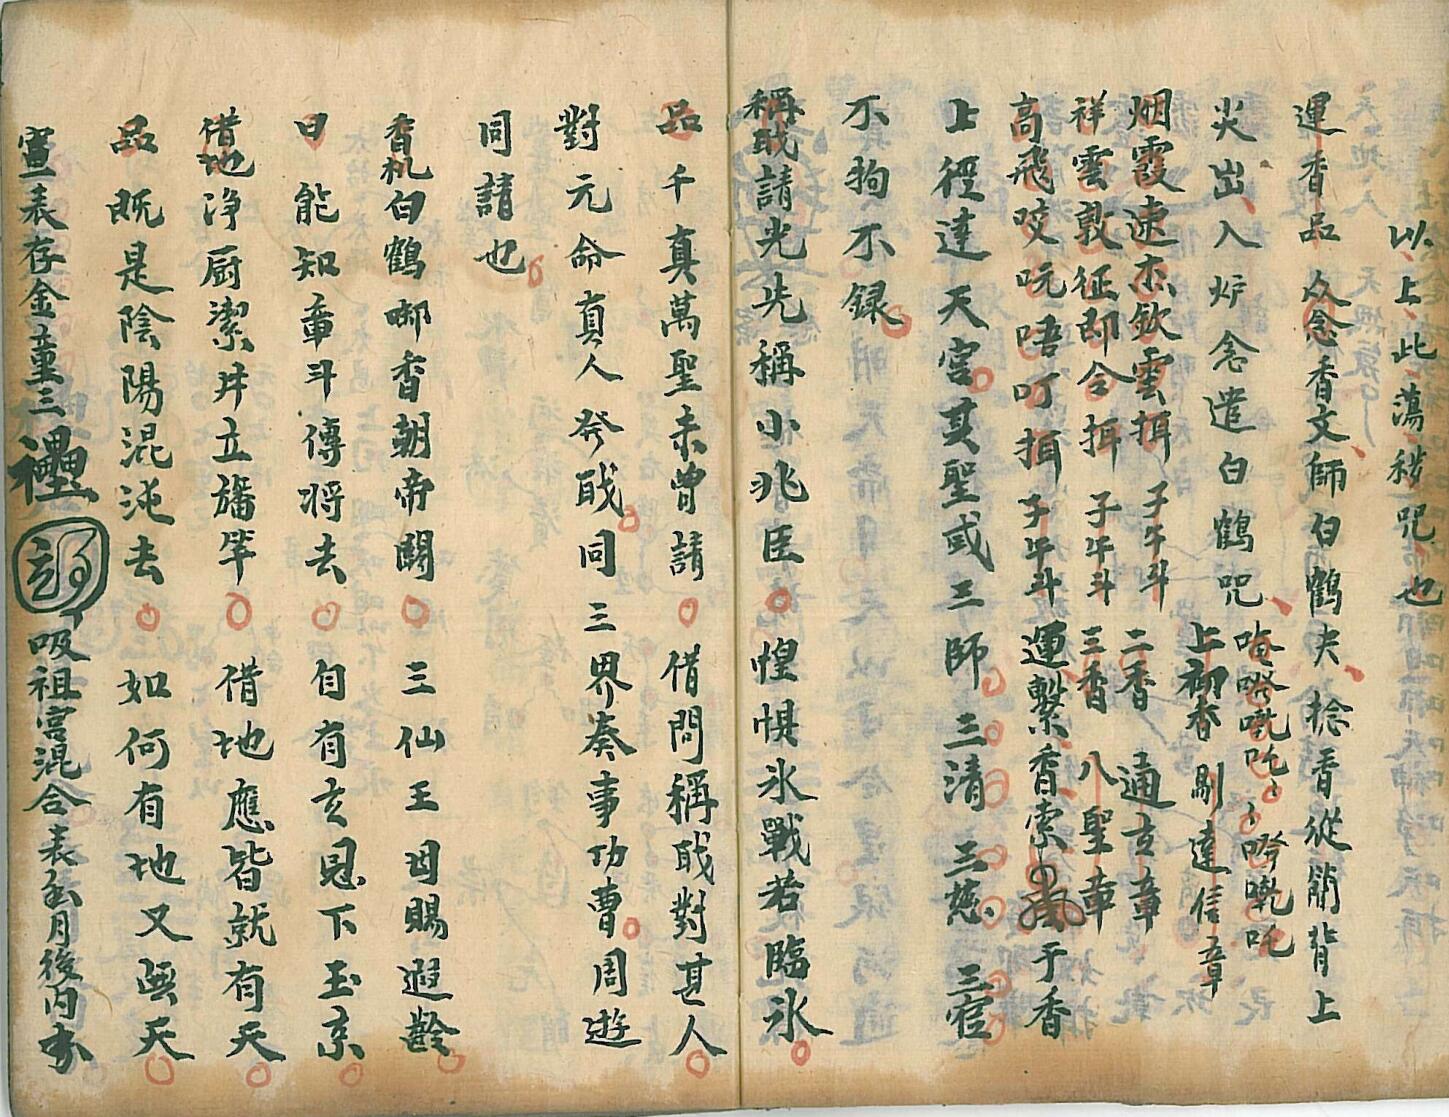 以上此蕩穢咒也
運香品众念香文師白鶴夾捻香從簡背上
尖出入炉念遣白鶴咒
上初香 剔達信章
烟霞速杰欽雲揖 子午斗 二香 通玄章
祥雲敦征却令揖 子午斗 三香 八聖章
高飛咬吭唔叮揖 子午斗 運繫香索 于香
上徑達天宫其聖或三師三清三慈三官
不狥不錄
稱戝請光先稱小兆臣惶惧氷戰若臨氷
品千真萬聖未曾請 借問稱戝對甚人
對元命真人發戝同三界奏事功曹周遊
同請也
香札白鶴啣香朝帝闕 三仙王因賜遐齡
日能知章斗傳将去 自有玄恩下玉京
借地净厨潔井立旛竿 借地應皆就有天
品既是陰陽混沌去 如何有地又無天
宣表存金童三禮 吸祖宫混合表 月後内